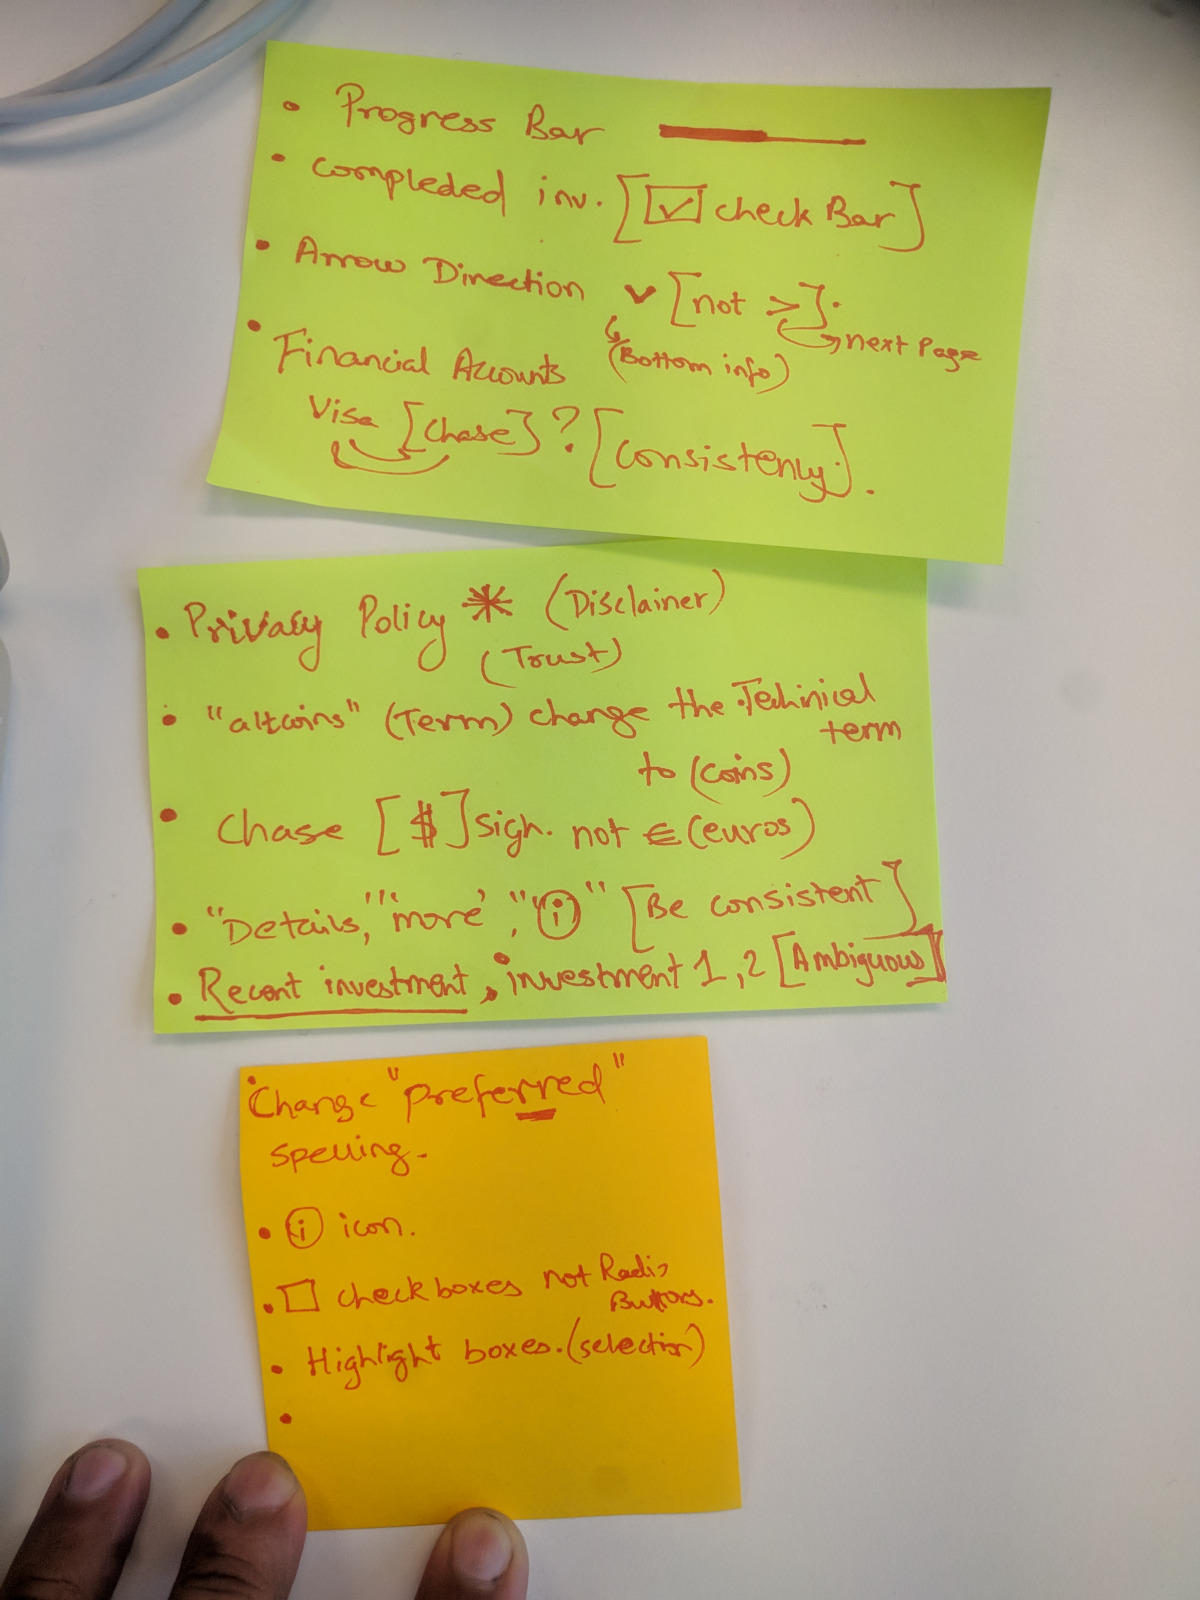 • Progress Bar
• compleded inv. [☑ check Bar]
• Arrow Direction ∨ [not >].
(Bottom info) next Page
• Financial Accounts
Visa [Chase] ? [Consistenly].
• Privacy Policy * (Disclainer)
(Trust)
• "altcoins" (Term) change the Techinical
term
to (coins)
• Chase [$] sign. not € (euros)
• "Details," "more", "ⓘ" [Be consistent]
• Recent investment, investment 1, 2 [Ambiguous]
• Change "preferred"
spelling.
• ⓘ icon.
• ☐ check boxes not Radio
Buttons.
• Highlight boxes. (selection)
•